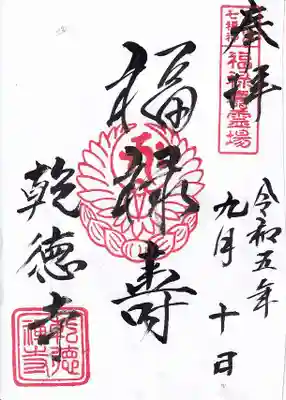 奉拝
七福神
福禄寿霊場
令和五年
九月十日
福禄寿
乾徳寺
乾徳
禅寺